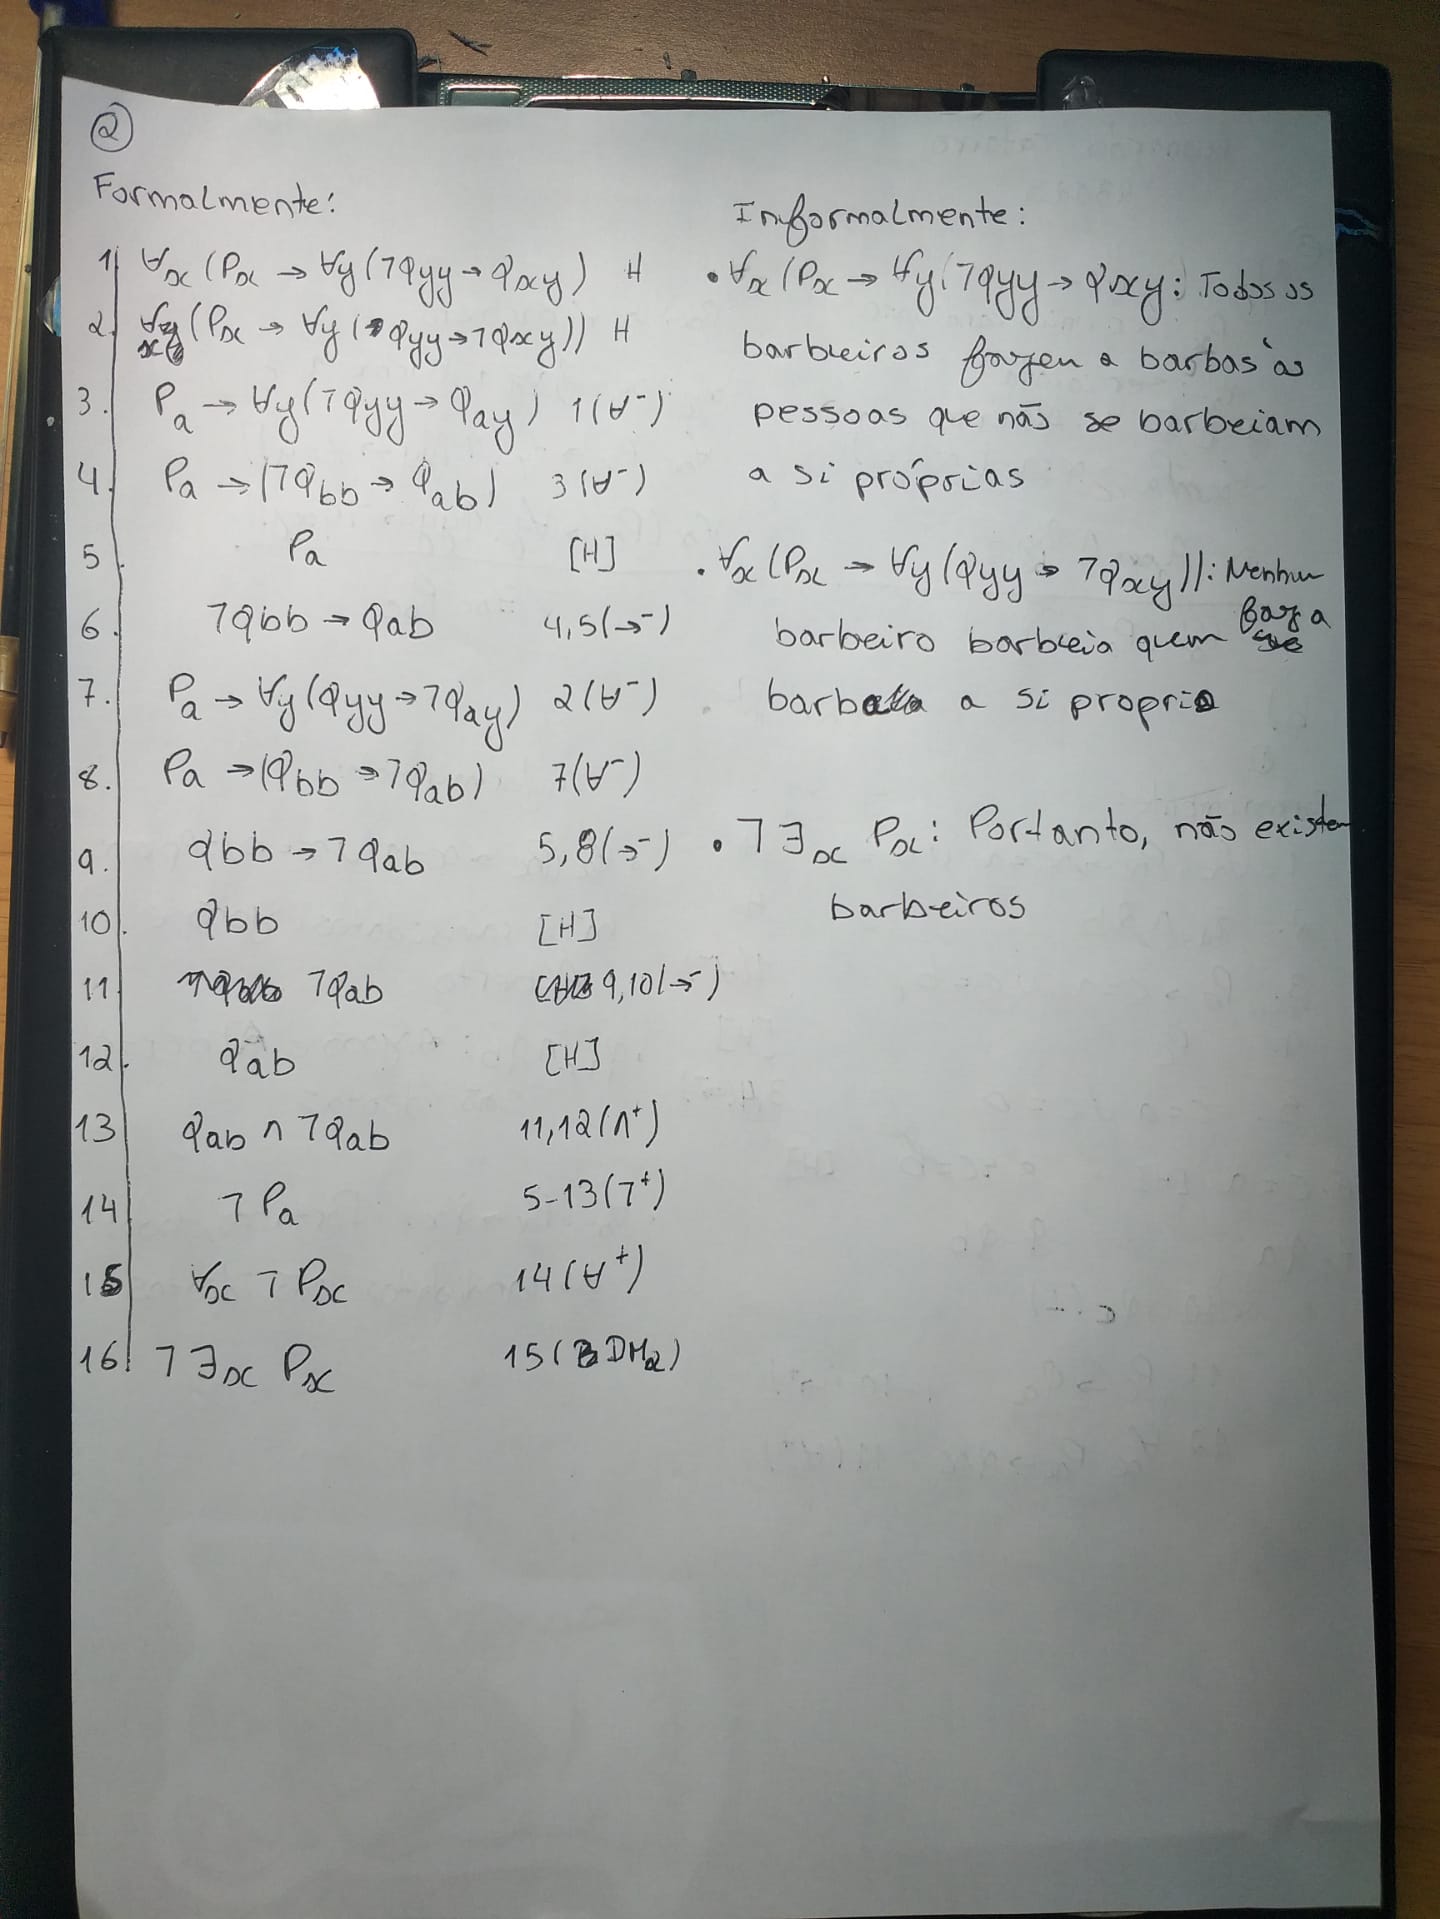 2
Formalmente:
1 ∀x (Px → ∀y(¬Qyy → Qxy) H
2. ∀x (Px → ∀y (Qyy → ¬Qxy)) H
3. Pa → ∀y(¬Qyy → Qay) 1(∀⁻)
4. Pa → (¬Qbb → Qab) 3(∀⁻)
5. Pa [H]
6. ¬Qbb → Qab 4,5(→⁻)
7. Pa → ∀y(Qyy → ¬Qay) 2(∀⁻)
8. Pa → (Qbb → ¬Qab) 7(∀⁻)
9. Qbb → ¬Qab 5,8(→⁻)
10. Qbb [H]
11 ¬Qab 9,10(→⁻)
12. Qab [H]
13 Qab ∧ ¬Qab 11,12(∧⁺)
14 ¬Pa 5-13(¬⁺)
15 ∀x ¬Px 14(∀⁺)
16. ¬∃x Px 15(DM2)
Informalmente:
• ∀x (Px → ∀y(¬Qyy → Qxy: Todos os
barbeiros fazem a barbas às
pessoas que não se barbeiam
a si próprias
• ∀x (Px → ∀y(Qyy → ¬Qxy)): Nenhum
barbeiro barbeia quem faz a
barba a si proprio
• ¬∃x Px: Portanto, não existem
barbeiros